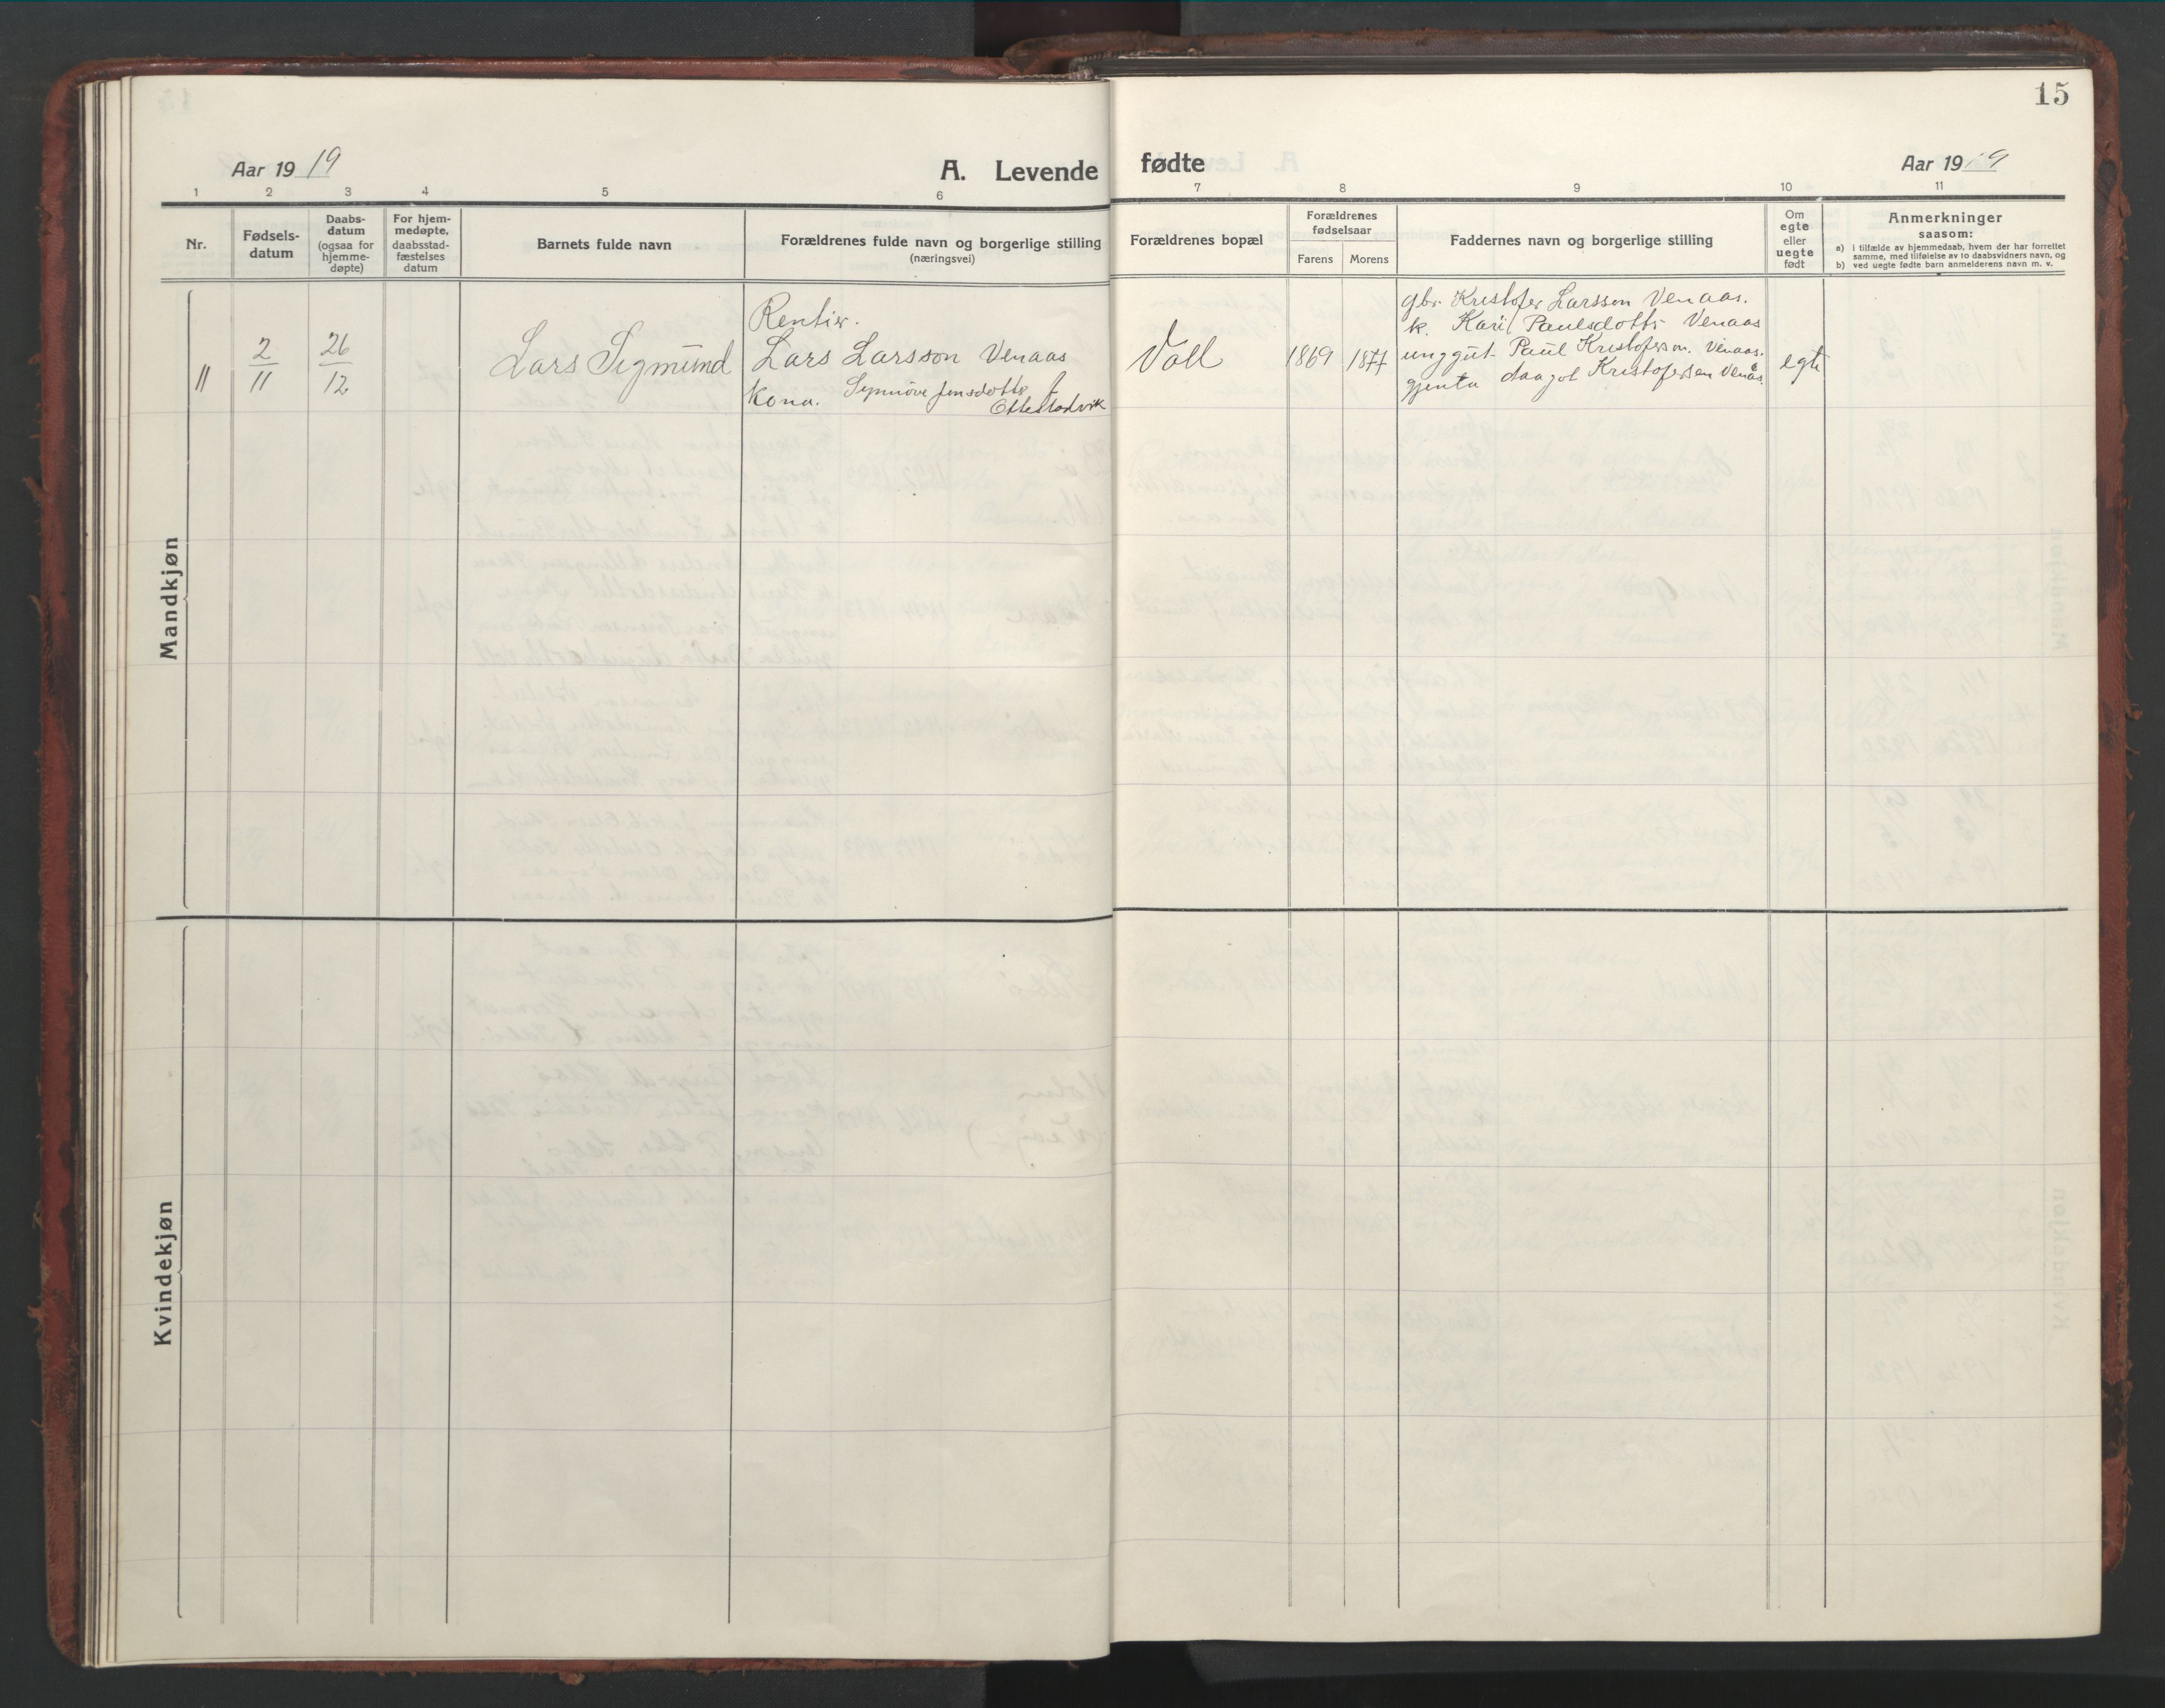 15
Aar 1919
A. Levende fødte
Aar 1919
1 2 3 4 5 6 7 8 9 10 11
Nr.
Fødsels-
datum
Daabs-
datum
(ogsaa for
hjemme-
døpte)
For hjem-
medøpte,
daabsstad-
fæstelses
datum
Barnets fulde navn
Forældrenes fulde navn og borgerlige stilling
(næringsvei)
Forældrenes bopæl
Forældrenes
fødselsaar
Farens Morens
Faddernes navn og borgerlige stilling
Om
egte
eller
uegte
født
Anmerkninger
saasom:
a) i tilfælde av hjemmedaab, hvem der har forrettet
samme, med tilføielse av to daabsvidners navn, og
b) ved uegte fødte barn anmelderens navn m. v.
Mandkjøn
11
2/11
26/12
Lars Sigmund
Rentier.
Lars Larsson Venaas
Kona. Synnöve Jensdotter f
Ottestadvik
Voll
1869
1877
gbr. Kristofer Larsson Venaas.
k. Kari Paulsdottr Venaas
unggut Paul Kristoferson. Venaas.
gjenta Daagot Kristofersen Venås.
egte
Kvindekjøn